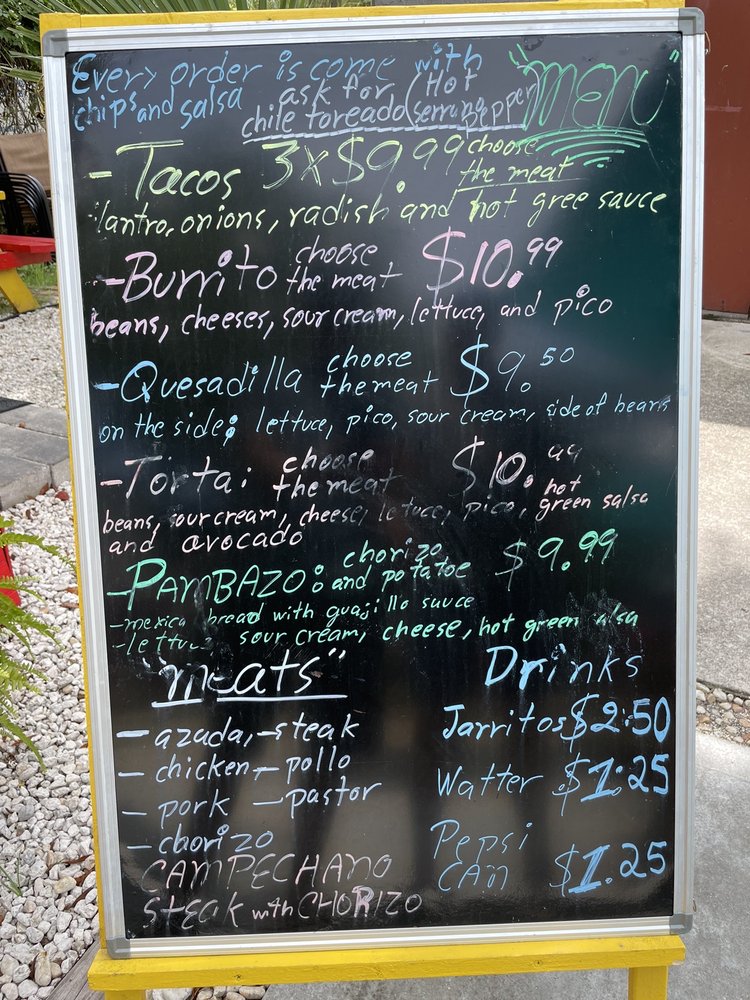 Every order is come with
chips and salsa ask for (Hot
chile toreado (serrano pepper)
"MENU"
- Tacos 3x$9.99 choose
the meat
lantro, onions, radish and hot gree sauce
- Burrito choose
the meat $10.99
beans, cheeses, sour cream, lettuce, and pico
- Quesadilla choose
the meat $9.50
on the side; lettuce, pico, sour cream, side of beans
- Torta: choose
the meat $10.99
beans, sour cream, cheese, letuce, pico, hot green salsa
and avocado
- PAMBAZO: chorizo
and potatoe $9.99
- mexica bread with guajillo sauce
- lettu sour cream, cheese, hot green alsa
"meats"
- azada, - steak
- chicken - pollo
- pork - pastor
- chorizo
CAMPECHANO
STEAK with CHORIZO
Drinks
Jarritos $2.50
Watter $1.25
Pepsi
CAN $1.25